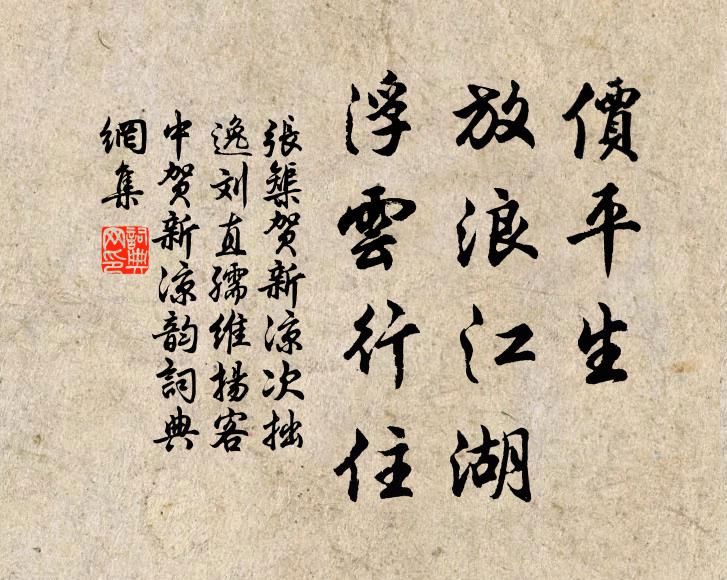 價平生
放浪江湖
浮雲行住
張榘賀新涼次拙
逸刘直孺维揚客
中贺新凉韵詞典
網集
詞典网印